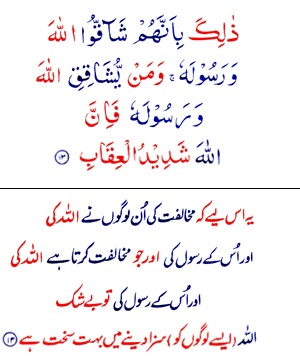 ذٰلِكَ بِاَنَّهُمْ شَآقُّوا اللّٰهَ
وَرَسُوْلَهٗ ۚ وَمَنْ يُّشَاقِقِ اللّٰهَ
وَرَسُوْلَهٗ فَاِنَّ
اللّٰهَ شَدِيْدُ الْعِقَابِ ۝۱۳
یہ اس لیے کہ مخالفت کی اُن لوگوں نے اللہ کی
اور اُس کے رسول کی اور جو مخالفت کرتا ہے اللہ کی
اور اُس کے رسول کی تو بے شک
اللہ (ایسے لوگوں کو) سزا دینے میں بہت سخت ہے ۝۱۳